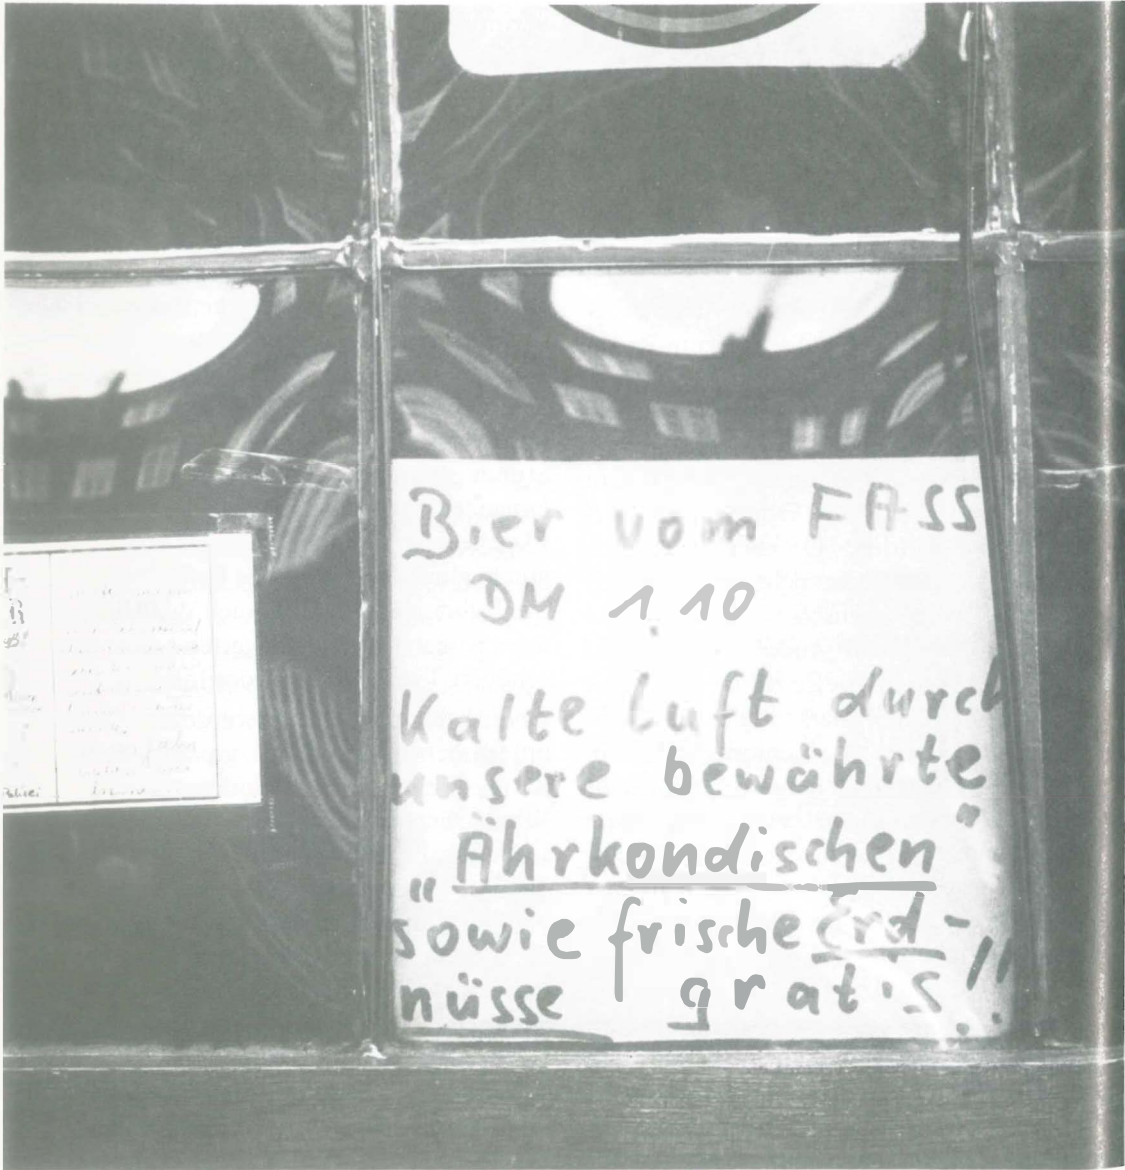 Bier vom FASS
DM 1.10
Kalte Luft durch
unsere bewährte
„Ährkondischen"
sowie frische Erd-
nüsse gratis!!